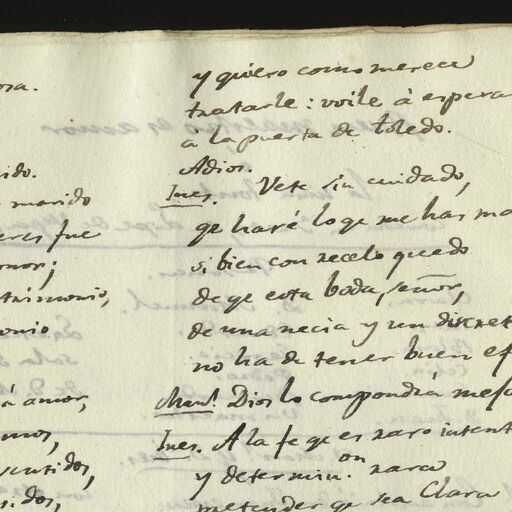 osa.
ido.
marido
fue
mor;
trimonio,
onio
á amor,
mos,
sentidos,
y quiero como merece
tratarle: voile á espera
a la puerta de toledo.
Adios.
Ines. Vete sin cuidado,
qe haré lo qe me has ma
si bien con recelo quedo
de qe esta boda, señor,
de una necia y un discret
no ha de tener buen ef
Manl. Dios lo compondrá mejo
Ines. A la fe qe es raro intent
y determinon rara
pretender qe sea Clara